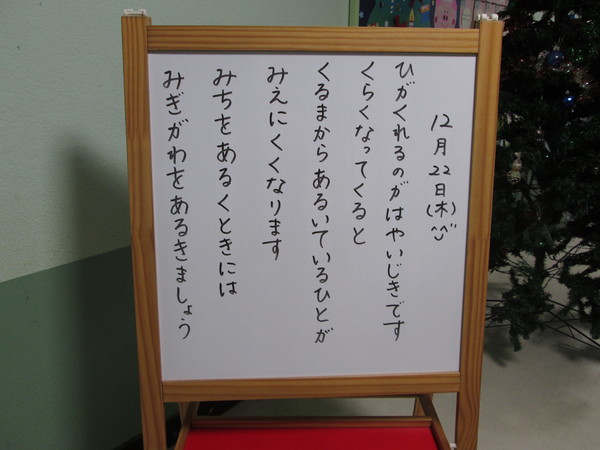 12月22日(木)^^
ひがくれるのがはやいじきです
くらくなってくると
くるまからあるいているひとが
みえにくくなります
みちをあるくときには
みぎがわをあるきましょう